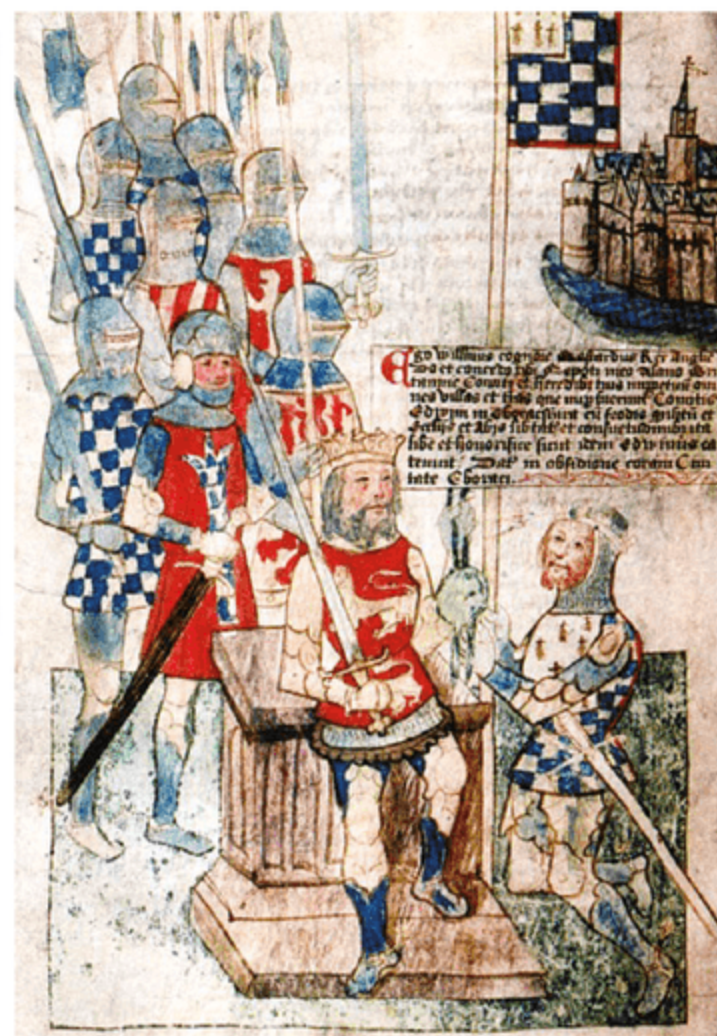 Ego Willmus Bastardus Rex Anglie
do et concedo tibi Nepoti meo Alano Bri
tannie Comiti et heredibus tuis om
nes villas et tras que nup fuerunt Comitis
Edwyni in cu feodis et
et Alijs et consuetudinibus ita
libe et honorifice sicut idem Edwinus ea
tenuit. Dat in obsidione coram Ciui
tate Eboraci.